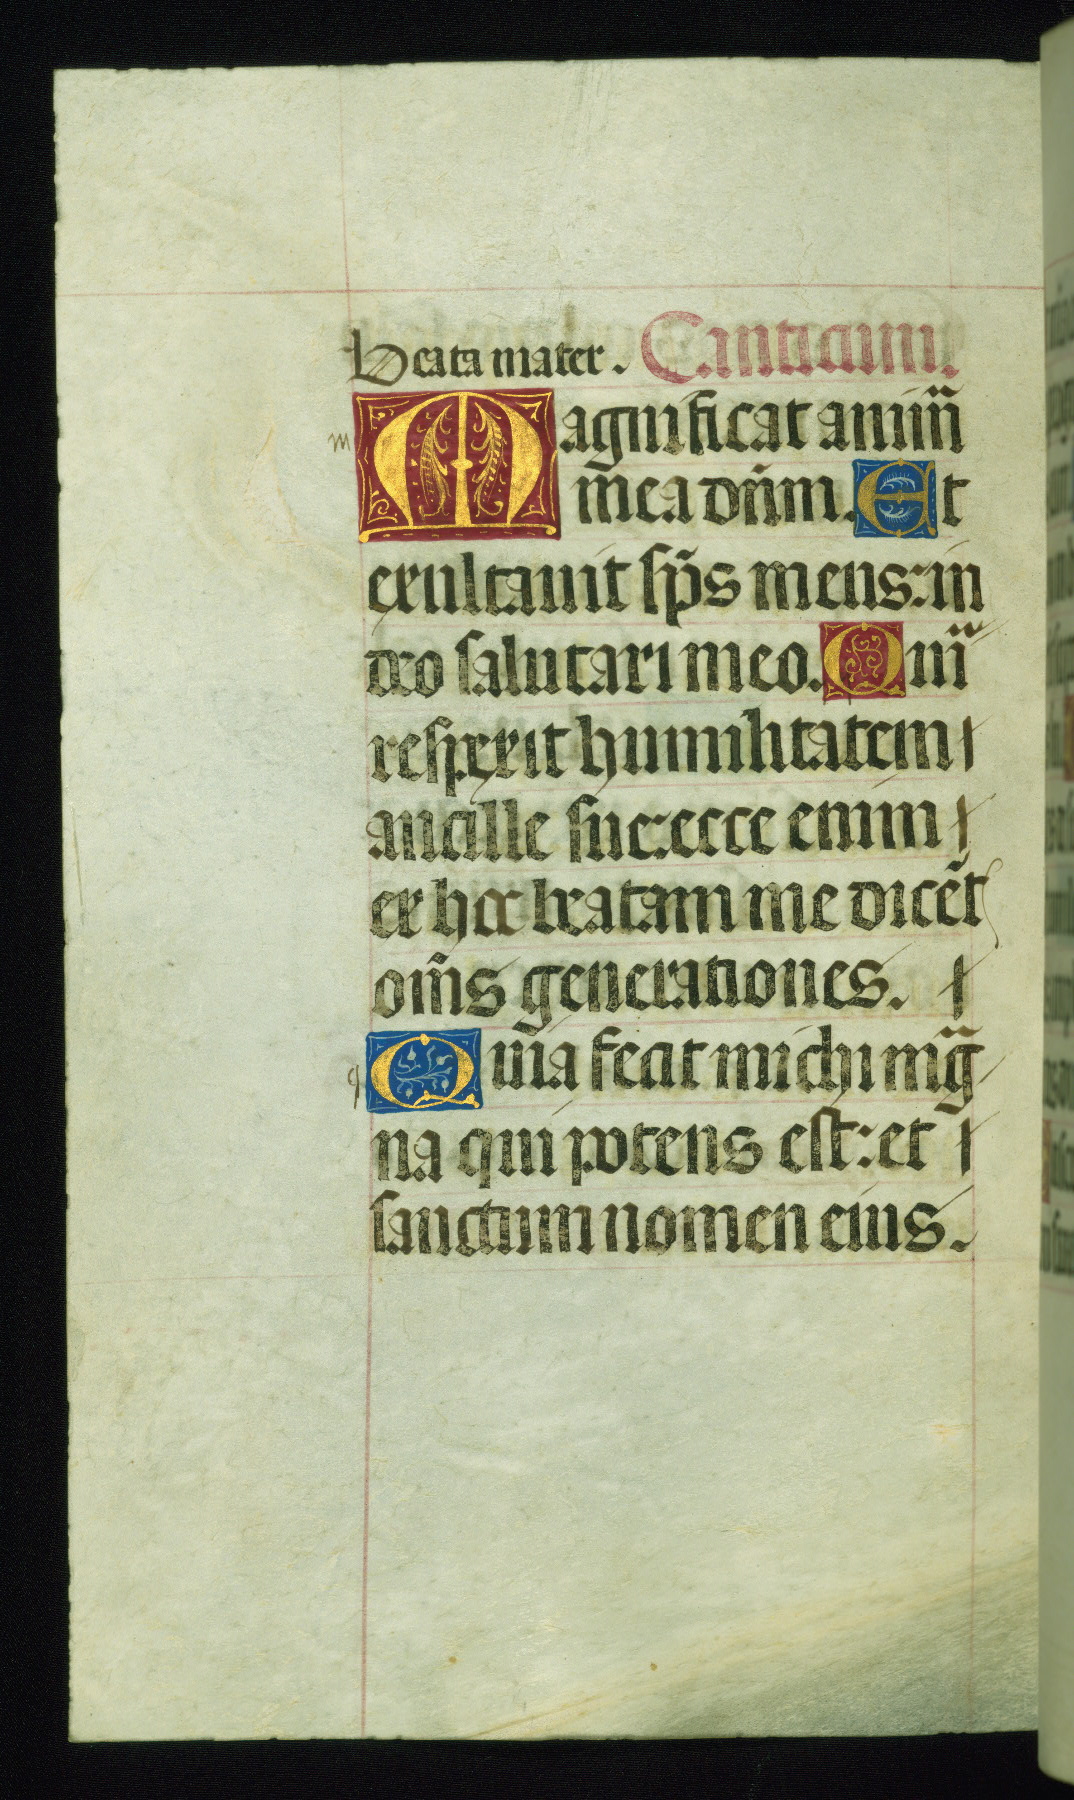 Beata mater. Canticum.
m Magnificat anim̄
mea dñm. Et
exultauit sp̃s meus: in
deo salutari meo. Qm̃
respexit humilitatem
ancille sue: ecce enim
ex hoc beatam me dicẽt
om̃s generationes.
q Quia fecit michi mag̃
na qui potens est: et
sanctum nomen eius.